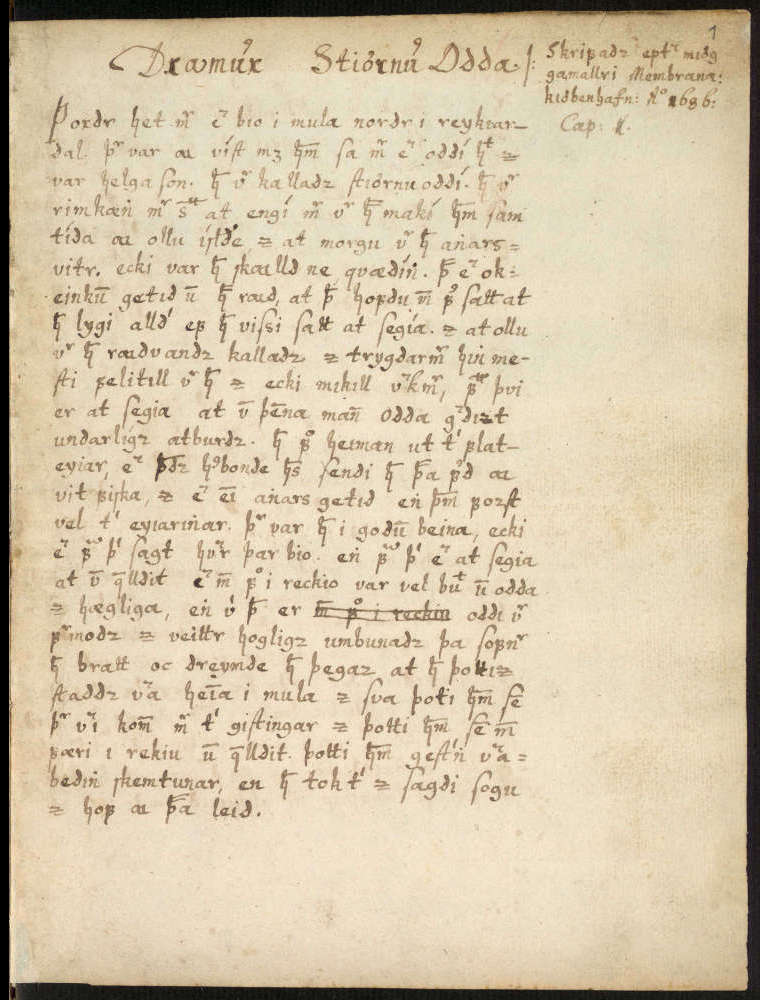 1
Draumur Stiórnu Odda.
Skrifadr eptir miǫg
gamallri Membrana:
kiǫbenhafn: Aº 1686:
Cap: 1.
Þordr het mͬ eͬ bio i mula nordr i reykiar-
dal. þͬ var aa víst mꝫ hm̄ sa mͬ eͬ oddí ht ⁊
var helga son. h̄ vͬ kalladr stiórnu oddí. h̄ vͬ
rimkæn̄ mͬ at engí mͬ vͬ h̄ makí hm̄ sam
tída aa ollu ⁊ at morgu vͬ h̄ an̄ars ⁊
vitr. ecki var h̄ skalld ne qvædín̄. þ̄ eͬ ok
einkū getid ū h̄ rad, at þ̄ hofdu m̄ fͦ satt at
h̄ lygi alld' ef h̄ vissi satt at segía. ⁊ at ollu
vͬ h̄ radvandr kalladr ⁊ trygdarmͬ hin me-
sti felitill vͬ h̄ ⁊ ecki mikill vͬkmͬ, þvi
er at segia at ū þen̄a man̄ odda
undarligr atburdr. h̄ fͦ heiman ut t' flat-
eyiar, eͬ h̄s sendi h̄ þ̄a aa
vit fiska, ⁊ eͬ an̄ars getid en̄ þm̄ forst
vel t' eyiarin̄ar. þͬ var h̄ i godū beina, ecki
eͬ þ' sagt hvͬr þar bio. en̄ þ' eͬ at segia
at ū qͣlldit eͬ m̄ fͦ i reckio var vel bu ū odda
⁊ hægliga, en̄ v' þ̄ er m̄ fͦ i reckiu oddi vͬ
fͬmodr ⁊ veittr hogligr umbunadr þa sofnͬ
h̄ bratt oc dreymde h̄ þegar at h̄ þottiz
staddr vͬa heīa i mula ⁊ sva þoti hm̄ sē
þͬ vͬi kom̄ mͬ t' gistingar ⁊ þotti hm̄ sē m̄
færi i rekiu ū qͣlldit. þotti hm̄ gest'n̄ vͬa
bedin̄ skemtunar, en h̄ tok t' ⁊ sagdi sogu
⁊ hof aa þ̄a leid.